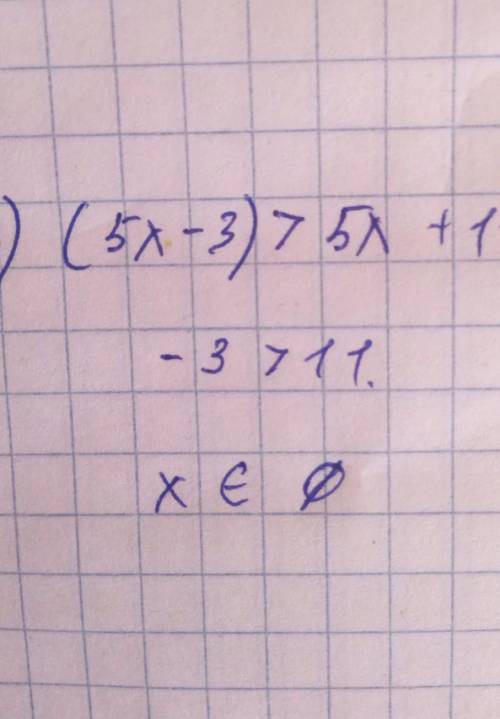 ) (5x - 3) > 5x + 1
- 3 > 11.
x ∈ ∅